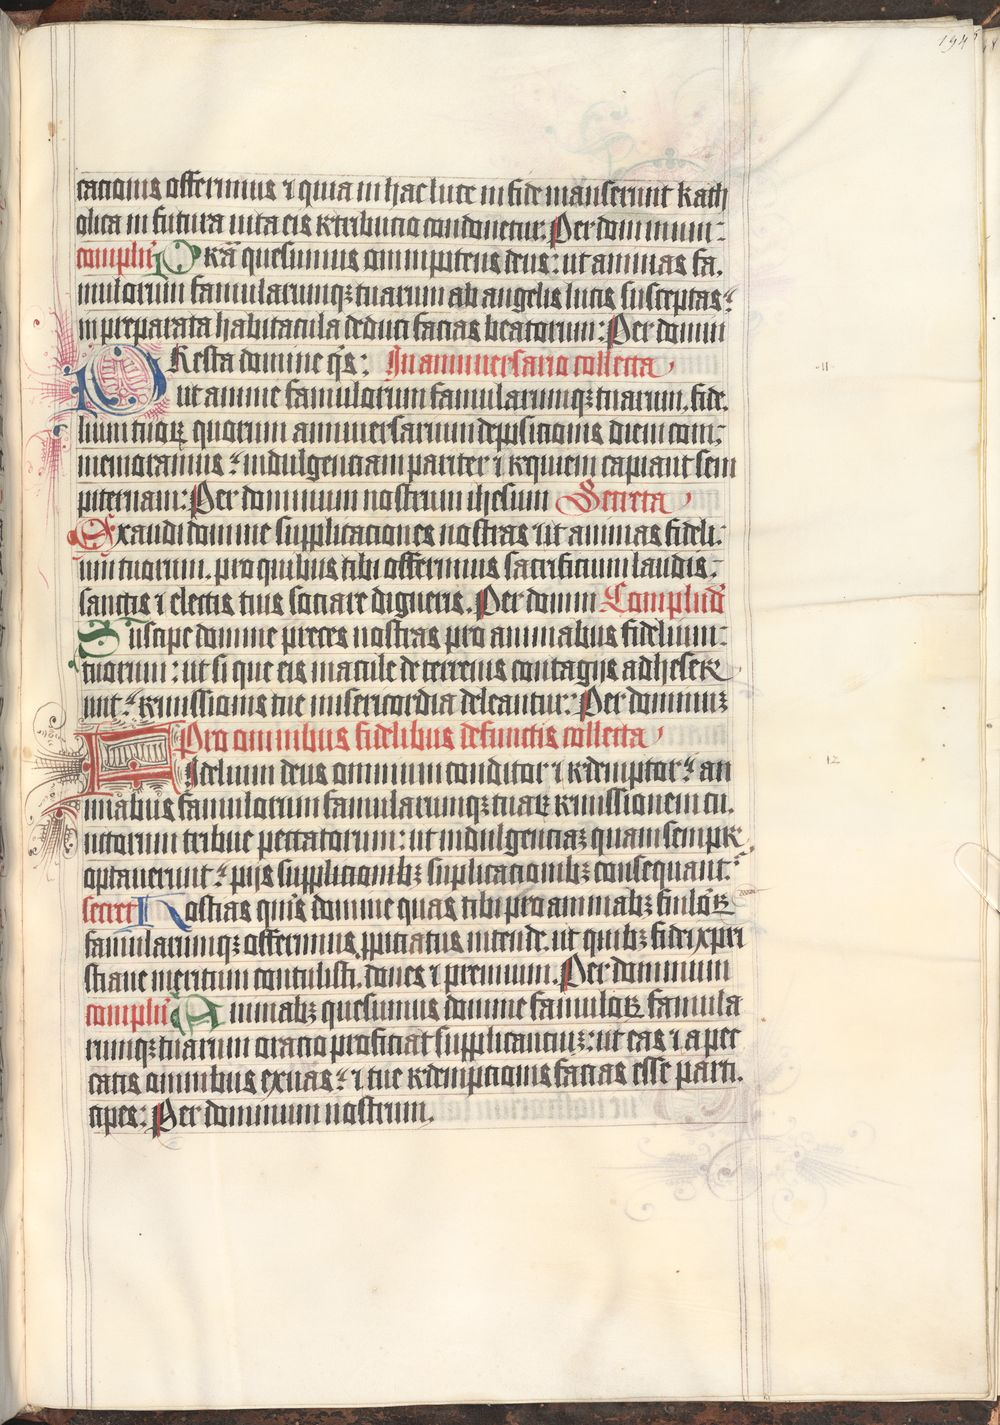 194
cationis offerimus ⁊ quia in hac luce in fide manserunt kath
olica in futura uita eis retributio condonetur. Per dominum:
compluͫ Prestā quesumus omnipotens deus: ut animas fa,
mulorum famularumqꝫ tuarum ab angelis lucis susceptas:
in preparata habitacula deduci facias beatorum: Per domin
PResta domine q̄s: In anniuersario collecta
ut anime famulorum famularumqꝫ tuarum, fide,
lium tuoꝝ quorum anniuersarium depositionis diem com,
memoramus: indulgenciam pariter ⁊ requiem capiant sem
piternam: Per dominum nostrum ihesum Secreta
Exaudi domine supplicationes nostras ut animas fideli,
um tuorum, pro quibus tibi offerimus sacrificium laudis:
sanctis ⁊ electis tuis sociare digneris. Per domin Complud̄
Suscipe domine preces nostras pro animabus fidelium:
tuorum: ut si que eis macule de terrenis contagijs adhesere
unt: remissionis tue misericordia deleantur: Per dominuꝫ
Pro omnibus fidelibus defunctis collecta
FIdelium deus omnium conditor ⁊ redemptor: an
imabus famulorum famularumqꝫ tuaꝝ remissionem cū,
nctorum tribue peccatorum: ut indulgenciaꝫ quam sempꝛe
optauerunt: pijs supplicationibꝫ consequant:
secret Hostias quis domine quas tibi pro animabꝫ fāulōꝝ
famularumqꝫ offerimus ꝓpitiatus intende, ut quibꝫ fidei xpri
stiane meritum contulisti, dones ⁊ premium. Per dominum
compluͫ Animabꝫ quesumus domine famuloꝝ famula
rumqꝫ tuarum oracio proficiat supplicanciuꝫ: ut eas ⁊ a pec
catis omnibus exuas: ⁊ tue redemptionis facias esse parti,
cipes: Per dominum nostrum.